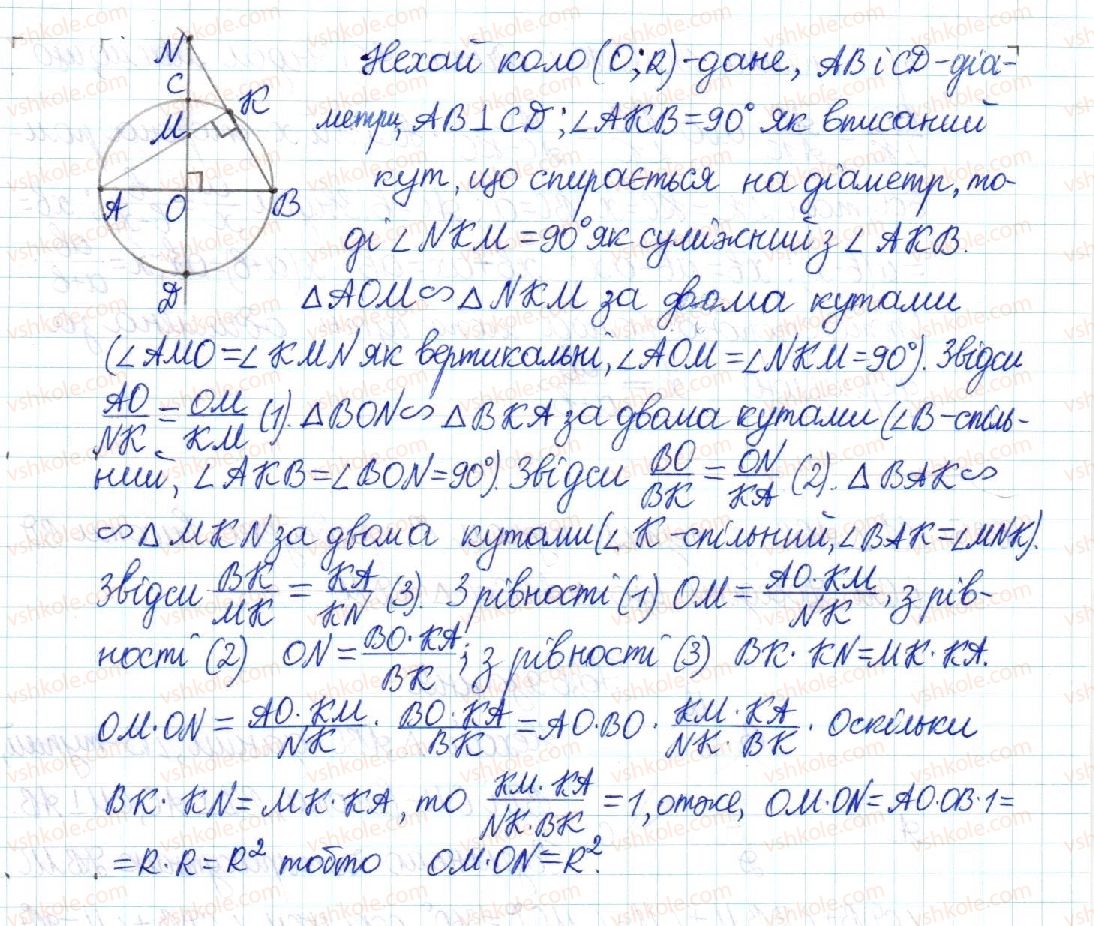 N
C
K
M
A
O
B
D
Нехай коло (O; R) - дане, AB і CD - діа-
метри, AB ⊥ CD; ∠AKB = 90° як вписаний
кут, що спирається на діаметр, то-
ді ∠NKM = 90° як суміжний з ∠AKB.
△AOM ∽ △NKM за двома кутами
(∠AMO = ∠KMN як вертикальні, ∠AOM = ∠NKM = 90°). Звідси
AO/NK = OM/KM (1). △BON ∽ △BKA за двома кутами (∠B - спіль-
ний, ∠AKB = ∠BON = 90°). Звідси BO/BK = ON/KA (2). △BAK ∽
∽ △MKN за двома кутами (∠K - спільний, ∠BAK = ∠MNK).
Звідси BK/MK = KA/KN (3). З рівності (1) OM = AO·KM/NK, з рів-
ності (2) ON = BO·KA/BK; з рівності (3) BK·KN = MK·KA.
OM·ON = AO·KM/NK · BO·KA/BK = AO·BO · KM·KA/NK·BK. Оскільки
BK·KN = MK·KA, то KM·KA/NK·BK = 1, отже, OM·ON = AO·OB·1 =
= R·R = R² тобто OM·ON = R².
vshkole.com